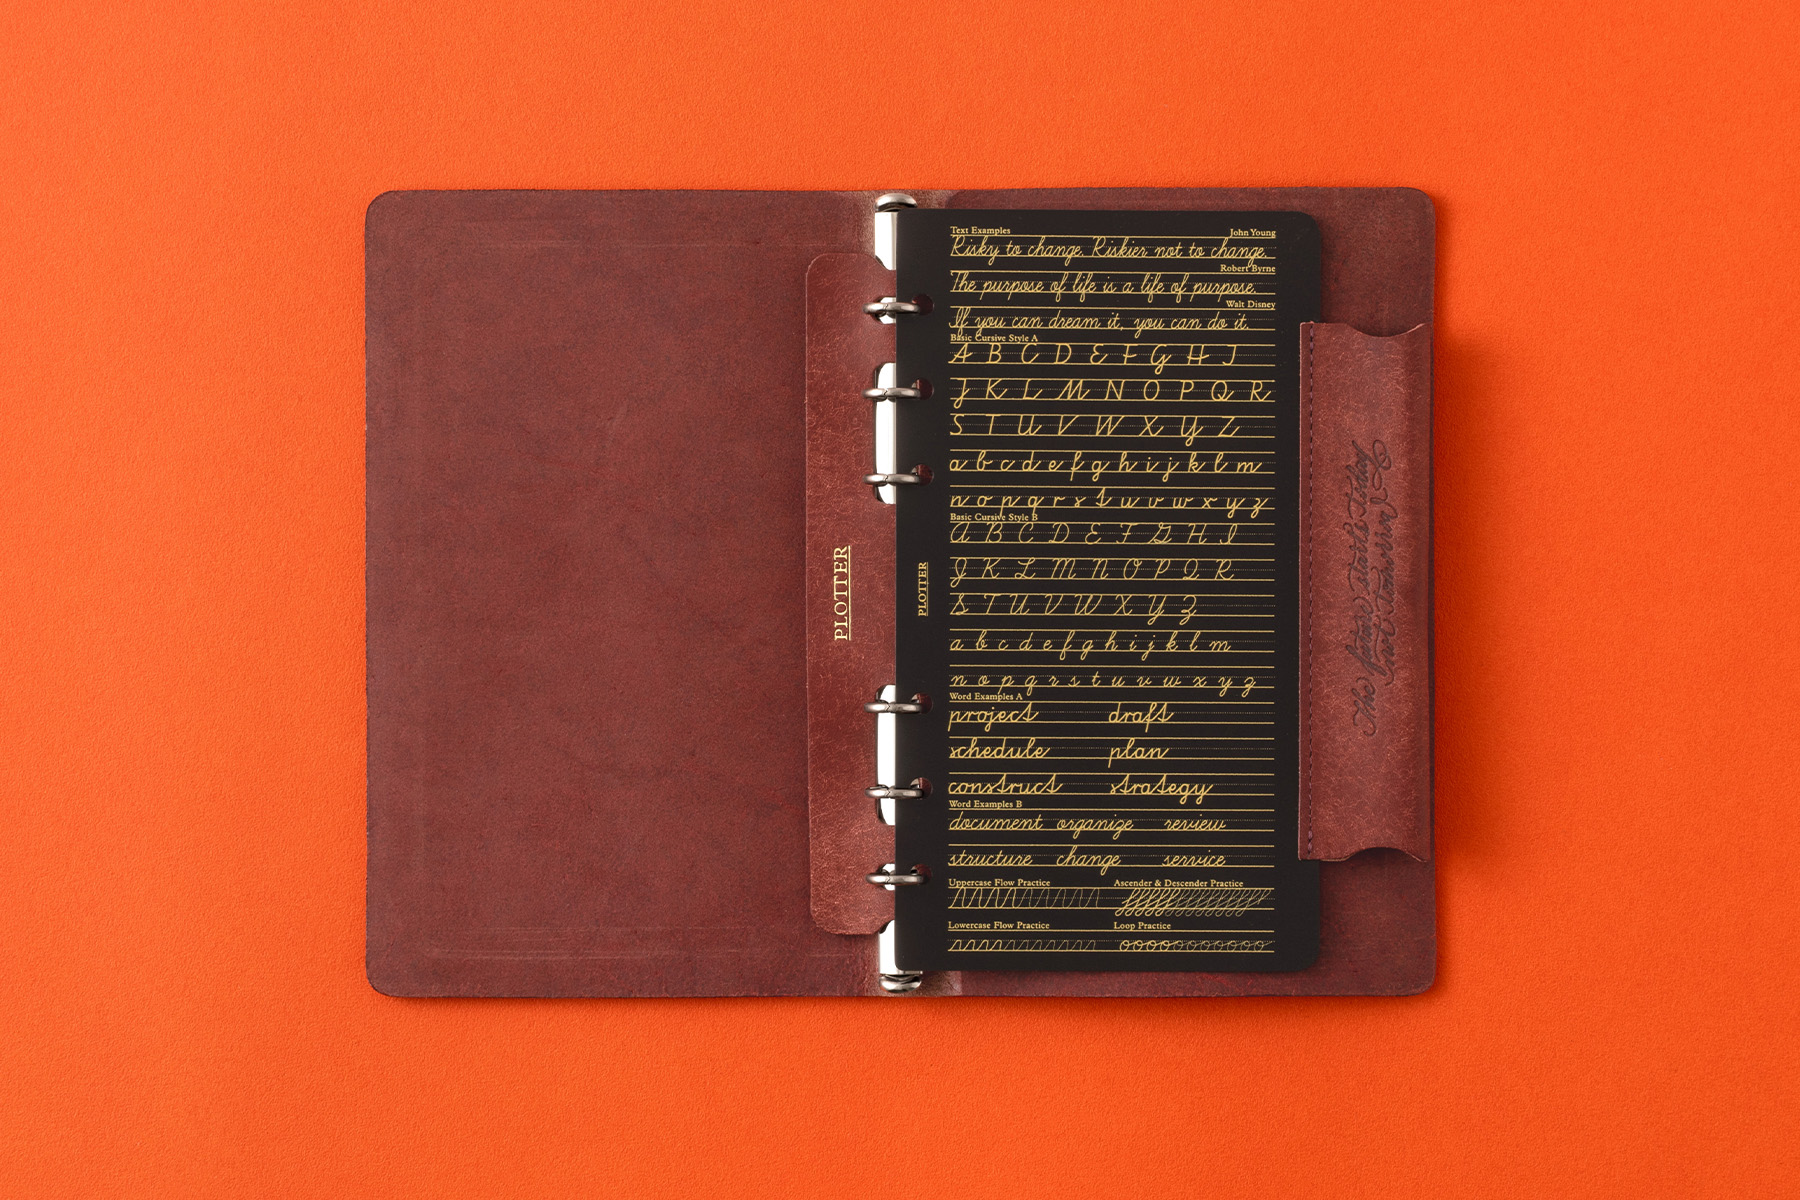 PLOTTER
PLOTTER
Text Examples John Young
Risky to change. Riskier not to change.
Robert Byrne
The purpose of life is a life of purpose.
Walt Disney
If you can dream it, you can do it.
Basic Cursive Style A
A B C D E F G H I
J K L M N O P Q R
S T U V W X Y Z
a b c d e f g h i j k l m
n o p q r s t u v w x y z
Basic Cursive Style B
A B C D E F G H I
J K L M N O P Q R
S T U V W X Y Z
a b c d e f g h i j k l m
n o p q r s t u v w x y z
Word Examples A
project draft
schedule plan
construct strategy
Word Examples B
document organize review
structure change service
Uppercase Flow Practice Ascender & Descender Practice
Lowercase Flow Practice Loop Practice
The future starts today
not tomorrow